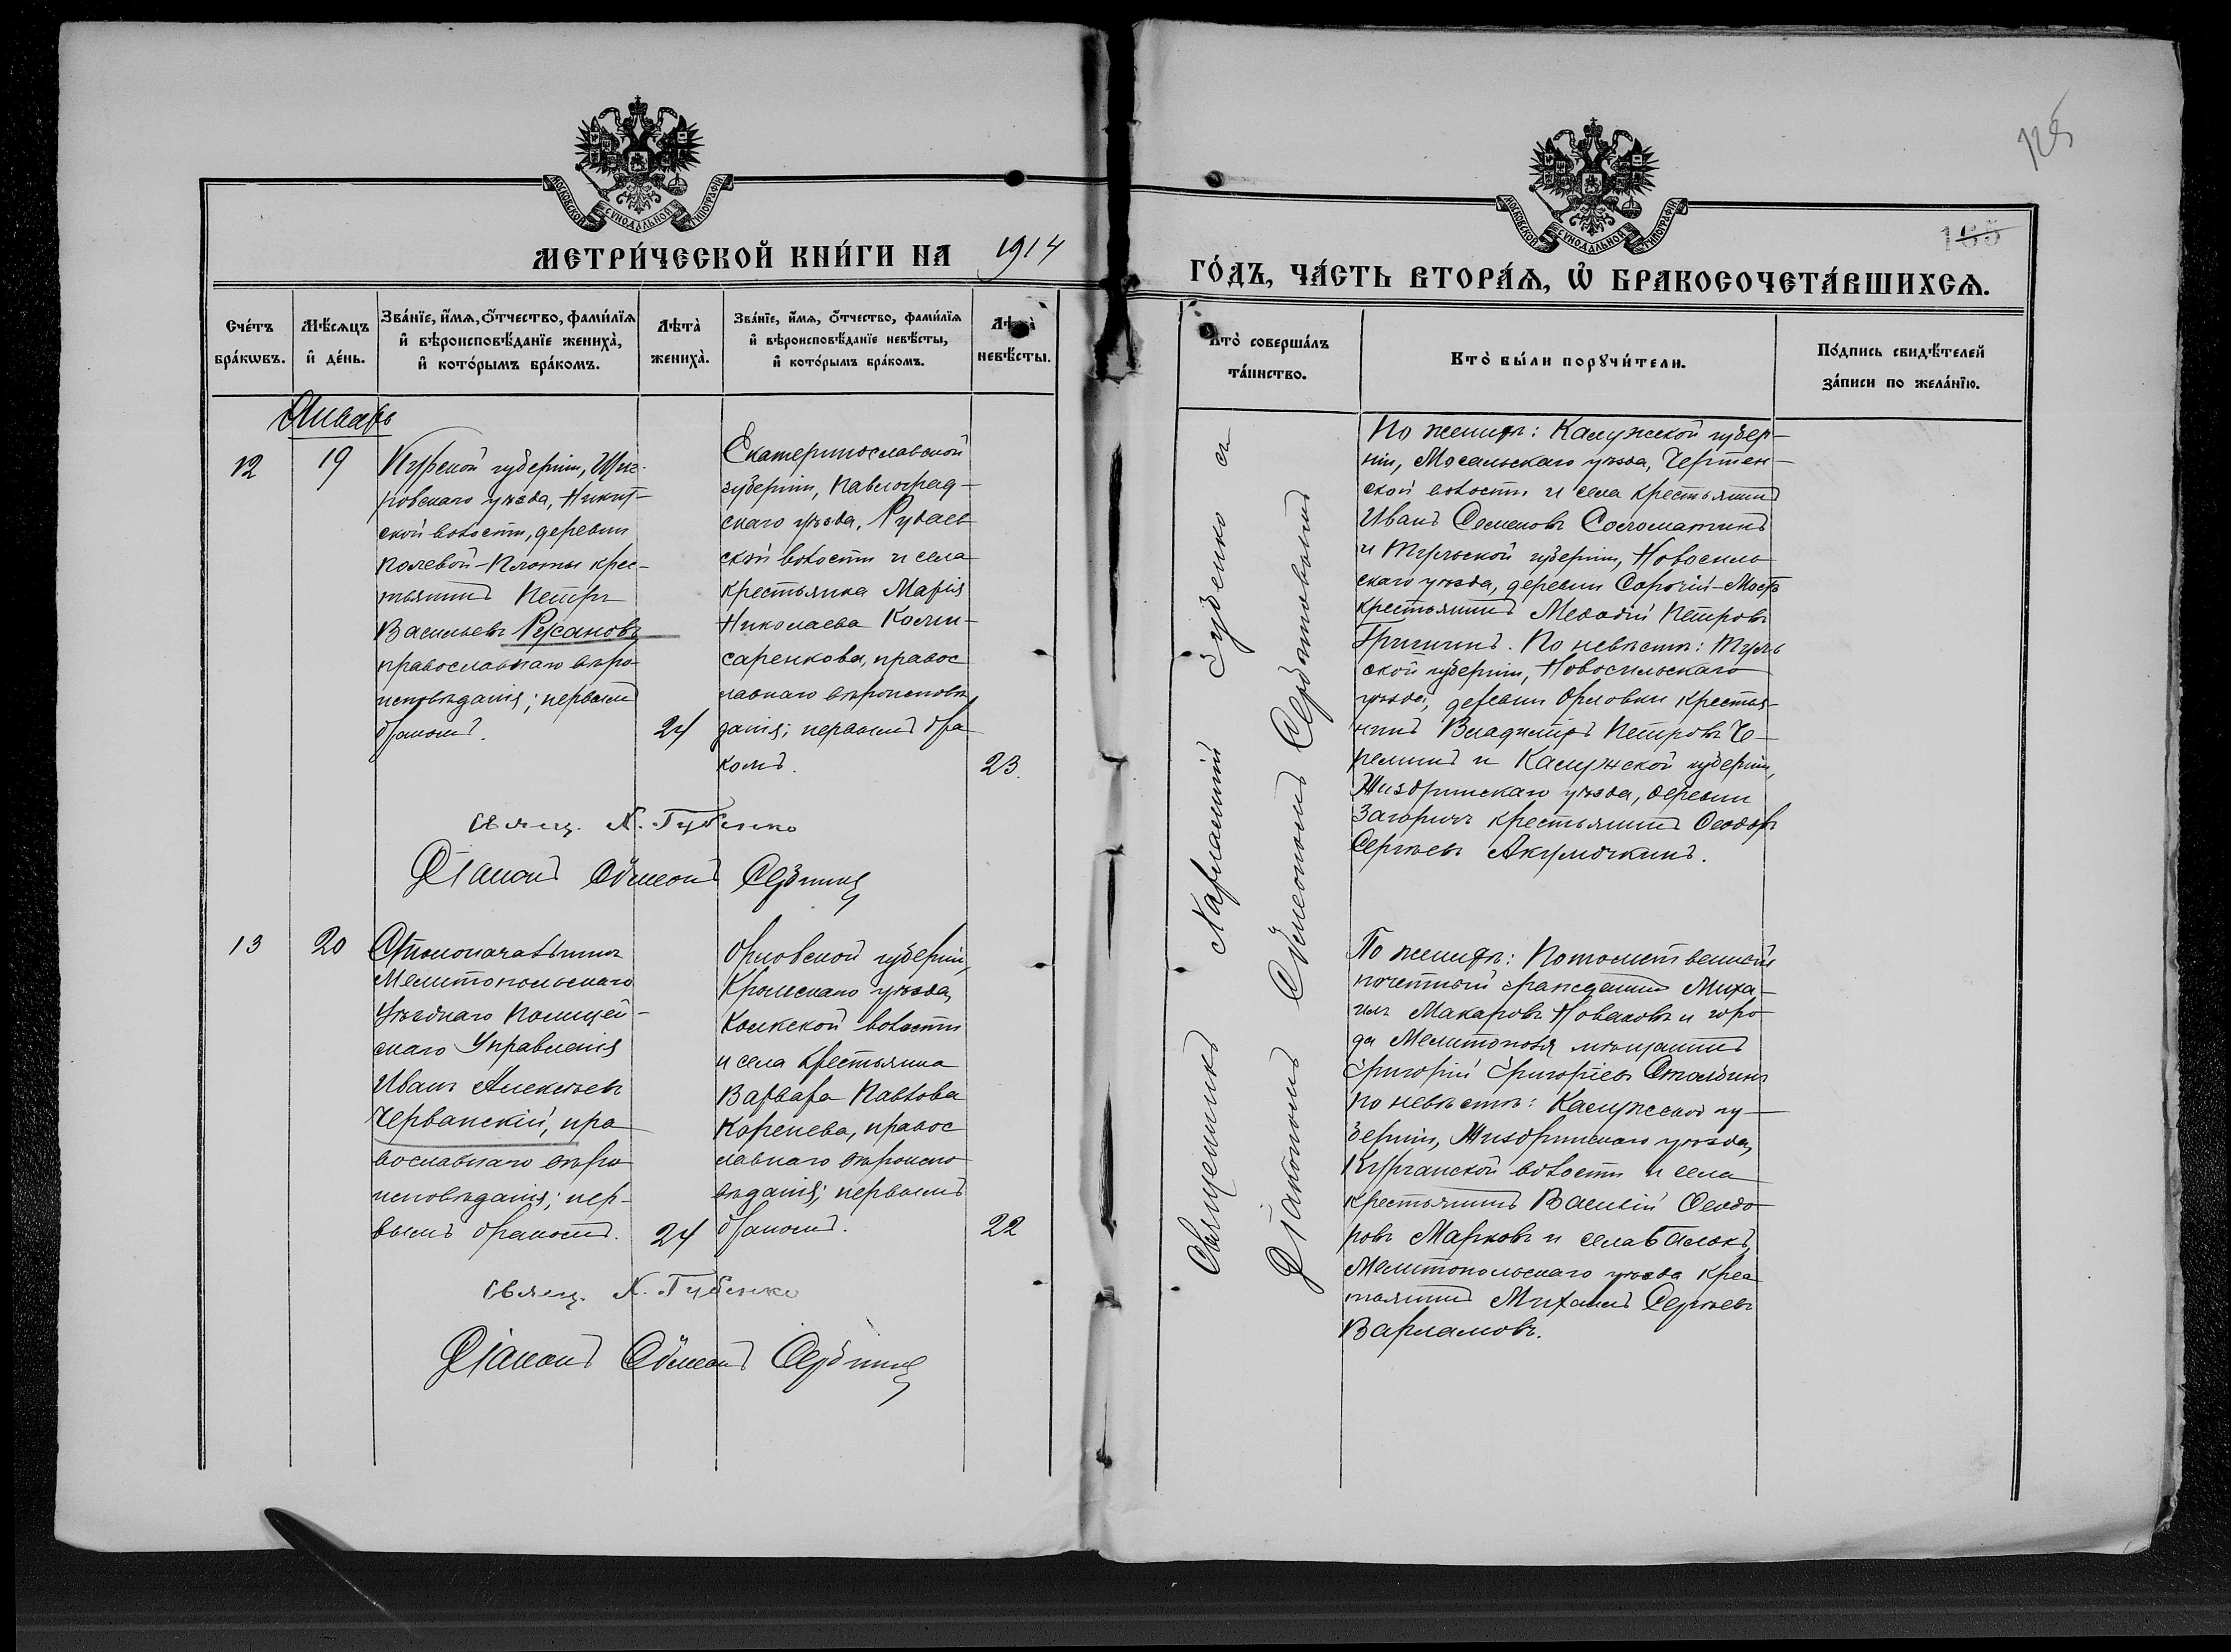 125
165
МОСКОВСКОЙ СѴНОДАЛЬНОЙ ТИПОГРАФІИ
МЕТРИ́ЧЕСКОЙ КНИ́ГИ НА 1914
МОСКОВСКОЙ СѴНОДАЛЬНОЙ ТИПОГРАФІИ
ГО́ДЪ, ЧА́СТЬ ВТОРА́Ѧ, Ѡ҆ БРАКОСОЧЕТА́ВШИХСѦ.
Сче́тъ бра́кѡвъ.
Мѣ́сѧцъ и҆ де́нь.
Зва́нїе, и҆́мѧ, ѻ҆́тчество, фами́лїѧ и҆ вѣроисповѣ́данїе жениха̀, и҆ кото́рымъ бра́комъ.
Лѣта̀ жениха̀.
Зва́нїе, и҆́мѧ, ѻ҆́тчество, фами́лїѧ и҆ вѣроисповѣ́данїе невѣ́сты, и҆ кото́рымъ бра́комъ.
Лѣта̀ невѣ́сты.
Кто̀ соверша́лъ та́инство.
Кто̀ бы́ли порꙋчи́тели.
По́дпись свидѣ́телей за́писи по жела́нїю.
Январь
12
19
Курской губерніи, Щиг-
ровскаго уѣзда, Никит-
ской волости, деревни
Полевой-Плоты крес-
тьянинъ Петръ
Васильевъ Русановъ
православнаго вѣро-
исповѣданія; первымъ
бракомъ.
24
Екатеринославской
губерніи, Павлоград-
скаго уѣзда, Рудаев
ской волости и села
крестьянка Марія
Николаева Коми-
саренкова, правос
лавнаго вѣроисповѣ
данія; первымъ бра
комъ.
23.
Свящ. Х. Губенко
Діаконъ Сѵмеонъ
Священникъ Харлампій Губенко съ
Діакономъ Сѵмеономъ
По женихѣ: Калужской губер-
ніи, Мосальскаго уѣзда, Чертен-
ской волости и села крестьянинъ
Иванъ Семеновъ Соломатинъ
и Тульской губерніи, Новосиль
скаго уѣзда, деревни Сорочій-Мостъ
крестьянинъ Меѳодій Петровъ
Гришинъ. По невѣстѣ: Туль
ской губерніи, Новосильскаго
уѣзда, деревни Орловки крестья-
нинъ Владиміръ Петровъ Че-
релинъ и Калужской губерніи,
Жиздринскаго уѣзда, деревни
Загоричъ крестьянинъ Ѳеодоръ
Сергѣевъ Акулочкинъ.
13
20
Столоначальникъ
Мелитопольскаго
Уѣзднаго Полицей-
скаго Управленія
Иванъ Алексѣевъ
Черванскій, пра
вославнаго вѣро
исповѣданія; пер-
вымъ бракомъ.
24
Орловской губерніи,
Кромскаго уѣзда,
волости
и села крестьянка
Варвара Павлова
Коренева, правос
лавнаго вѣроиспо
вѣданія; первымъ
бракомъ.
22
Свящ. Х. Губенко
Діаконъ Сѵмеонъ
По женихѣ: Потомственный
почетный гражданинъ Миха-
илъ Макаровъ Новаковъ и горо
да Мелитополя мѣщанинъ
Григорій Григоріевъ Столбинъ
по невѣстѣ: Калужской гу-
берніи, Жиздринскаго уѣзда,
Курганской волости и села
крестьянинъ Василій Ѳеодо
ровъ Марковъ и села Балокъ,
Мелитопольскаго уѣзда крес
тьянинъ Михаилъ Сергѣевъ
Варламовъ.